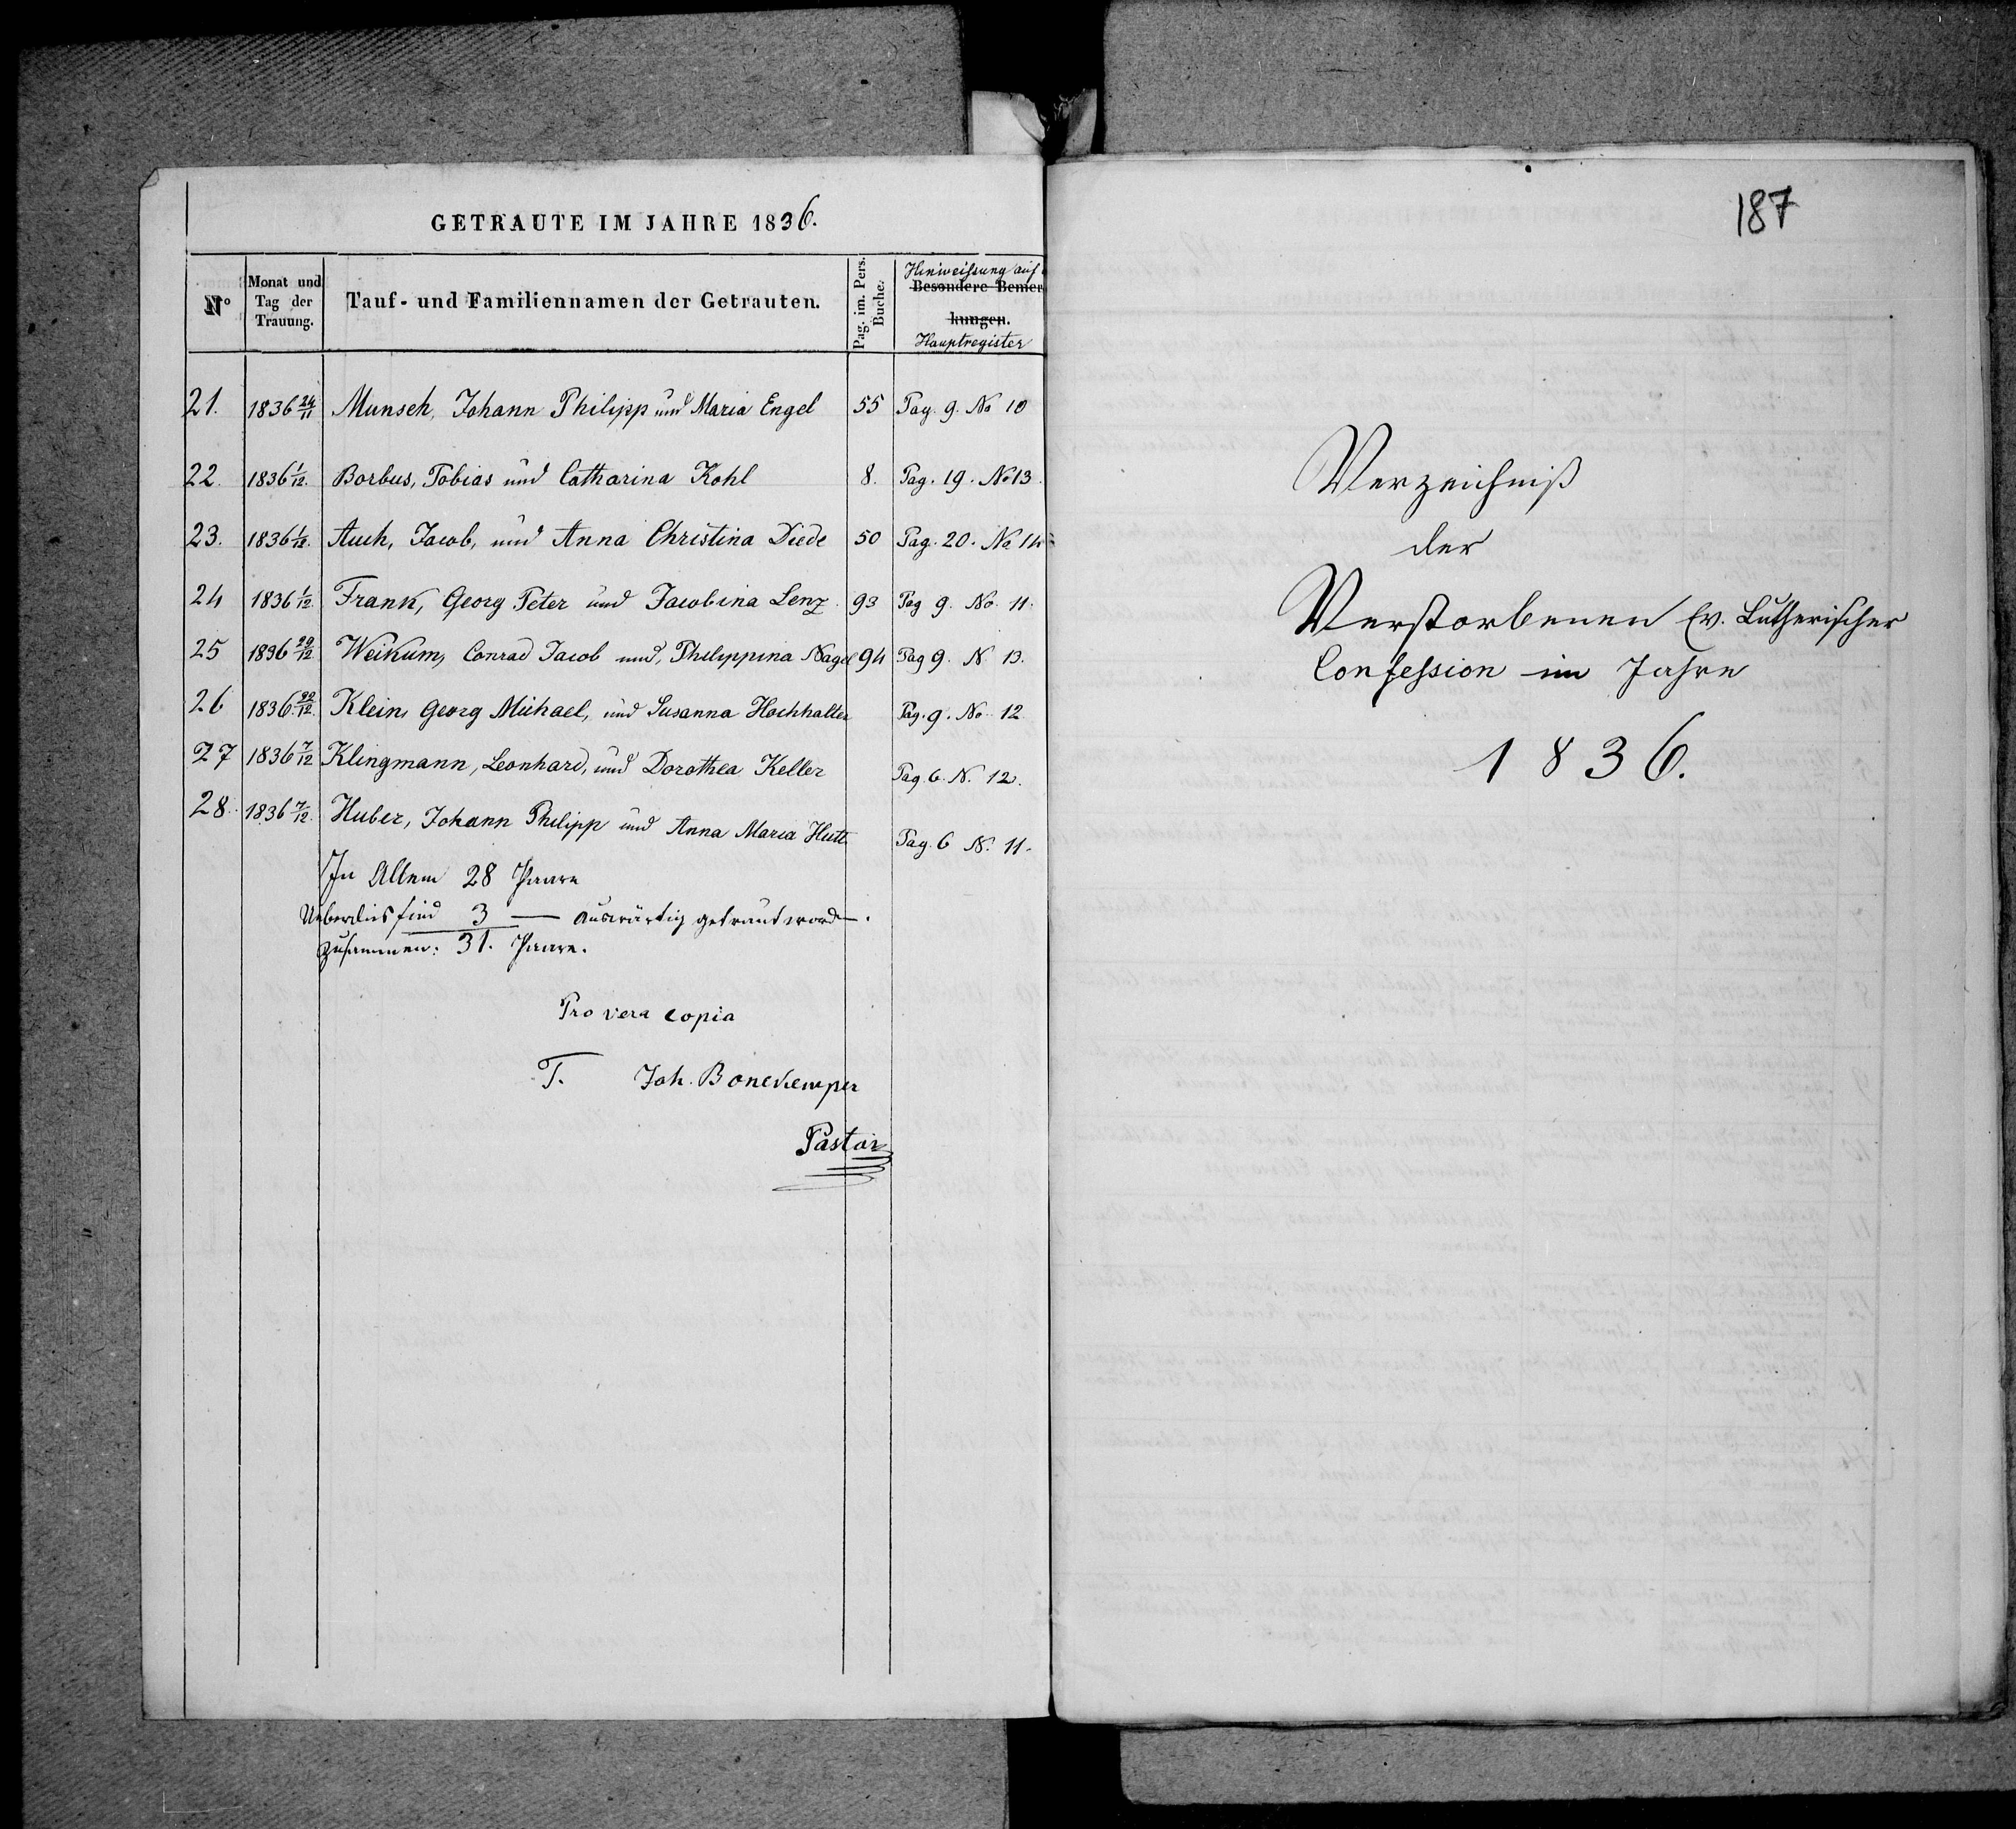 GETRAUTE IM JAHRE 1836.
N° Monat und Tag der Trauung. Tauf- und Familiennamen der Getrauten. Pag. im. Pers. Buche. Hinweißung auf Besondere Bemer kungen. Hauptregister
21. 1836 24/11 Munsch, Johann Philipp und Maria Engel 55 Pag. 9. No 10
22. 1836 1/12. Borbus, Tobias und Catharina Kohl 8. Pag. 19. No 13.
23. 1836 1/12. Auch, Jacob, und Anna Christina Diede 50 Pag. 20. No 14
24 1836 1/12. Frank, Georg Peter und Jacobina Lenz. 93 Pag 9. No. 11.
25 1836 29/12 Weikum, Conrad Jacob und, Philippina Nagel 94 Pag 9. N 13.
26 1836. 22/12 Klein, Georg Michael, und Susanna Hochhalter Pag. 9. No. 12
27 1836 7/12 Klingmann, Leonhard, und Dorothea Keller Pag. 6. N. 12.
28. 1836 7/12. Huber, Johann Philipp und Anna Maria Hutt Pag. 6 N. 11.
In Allem 28 Paare
Ueberdies sind 3 — auswärtig getraut word—.
Zusammen: 31. Paare.
Pro vera copia
T. Joh. Bonekemper
Pastor
187
Verzeichniß
der
Verstorbenen Ev. Lutherischer
Confession im Jahre
1836.